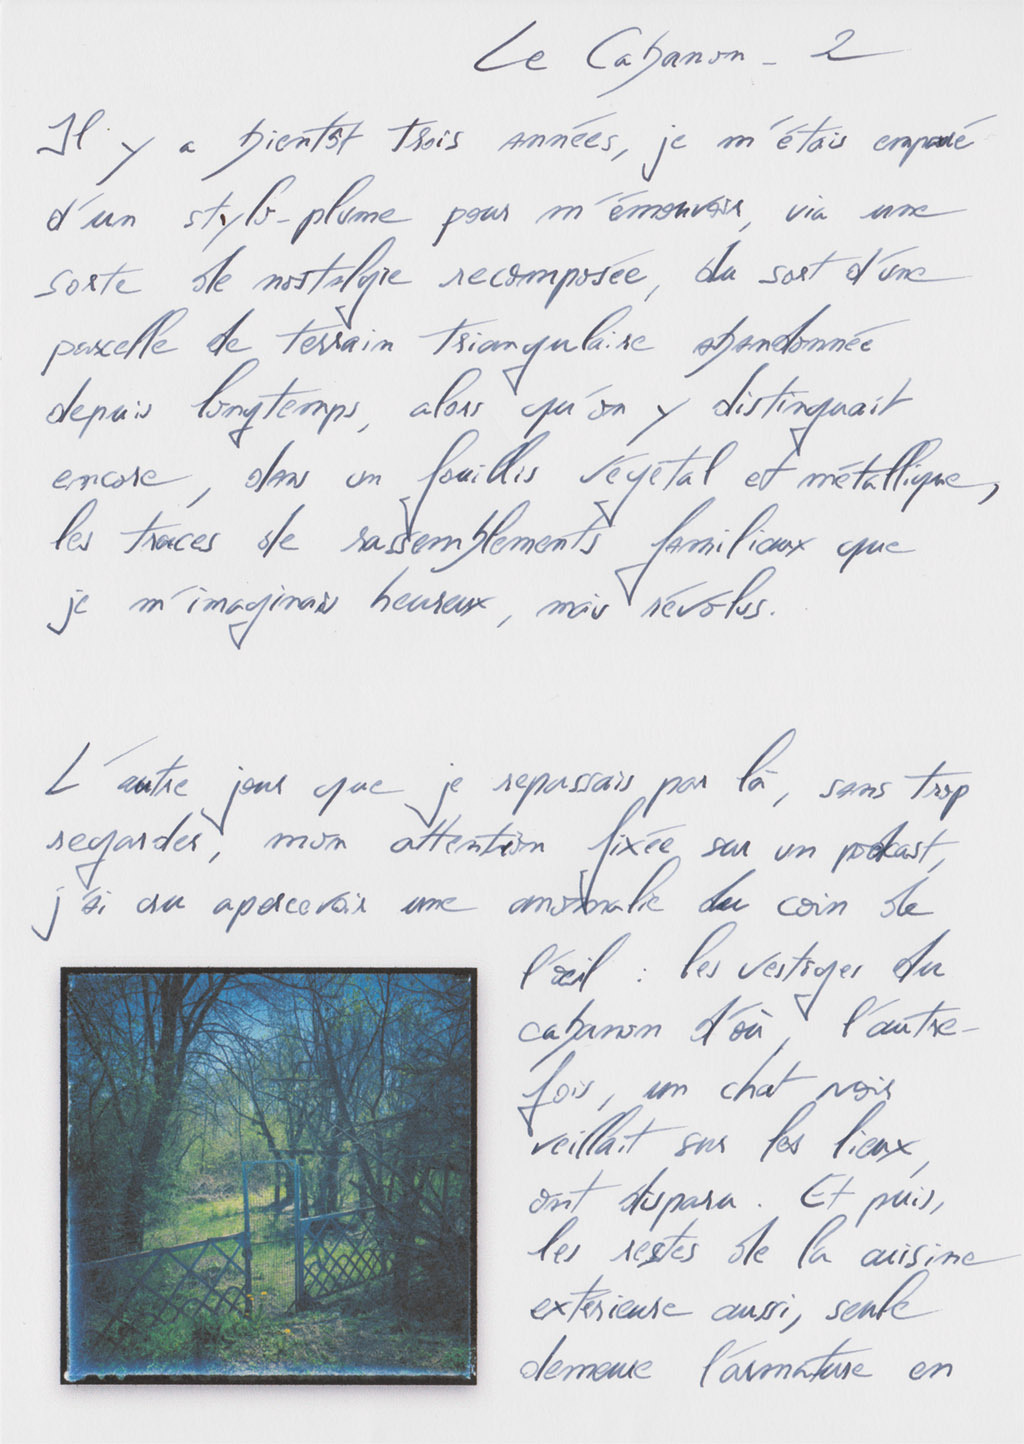 Le Cabanon - 2
Il y a bientôt trois années, je m'étais emparé
d'un stylo-plume pour m'émouvoir, via une
sorte de nostalgie recomposée, du sort d'une
parcelle de terrain triangulaire abandonnée
depuis longtemps, alors qu'on y distinguait
encore, dans un fouillis végétal et métallique,
les traces de rassemblements familiaux que
je m'imaginais heureux, mais révolus.
L'autre jour que je repassais par là, sans trop
regarder, mon attention fixée sur un podcast,
j'ai cru apercevoir une anomalie du coin de
l'œil : les vestiges du
cabanon d'où, l'autre-
fois, un chat noir
veillait sur les lieux,
ont disparu. Et puis,
les restes de la cuisine
extérieure aussi, seule
demeure l'armature en